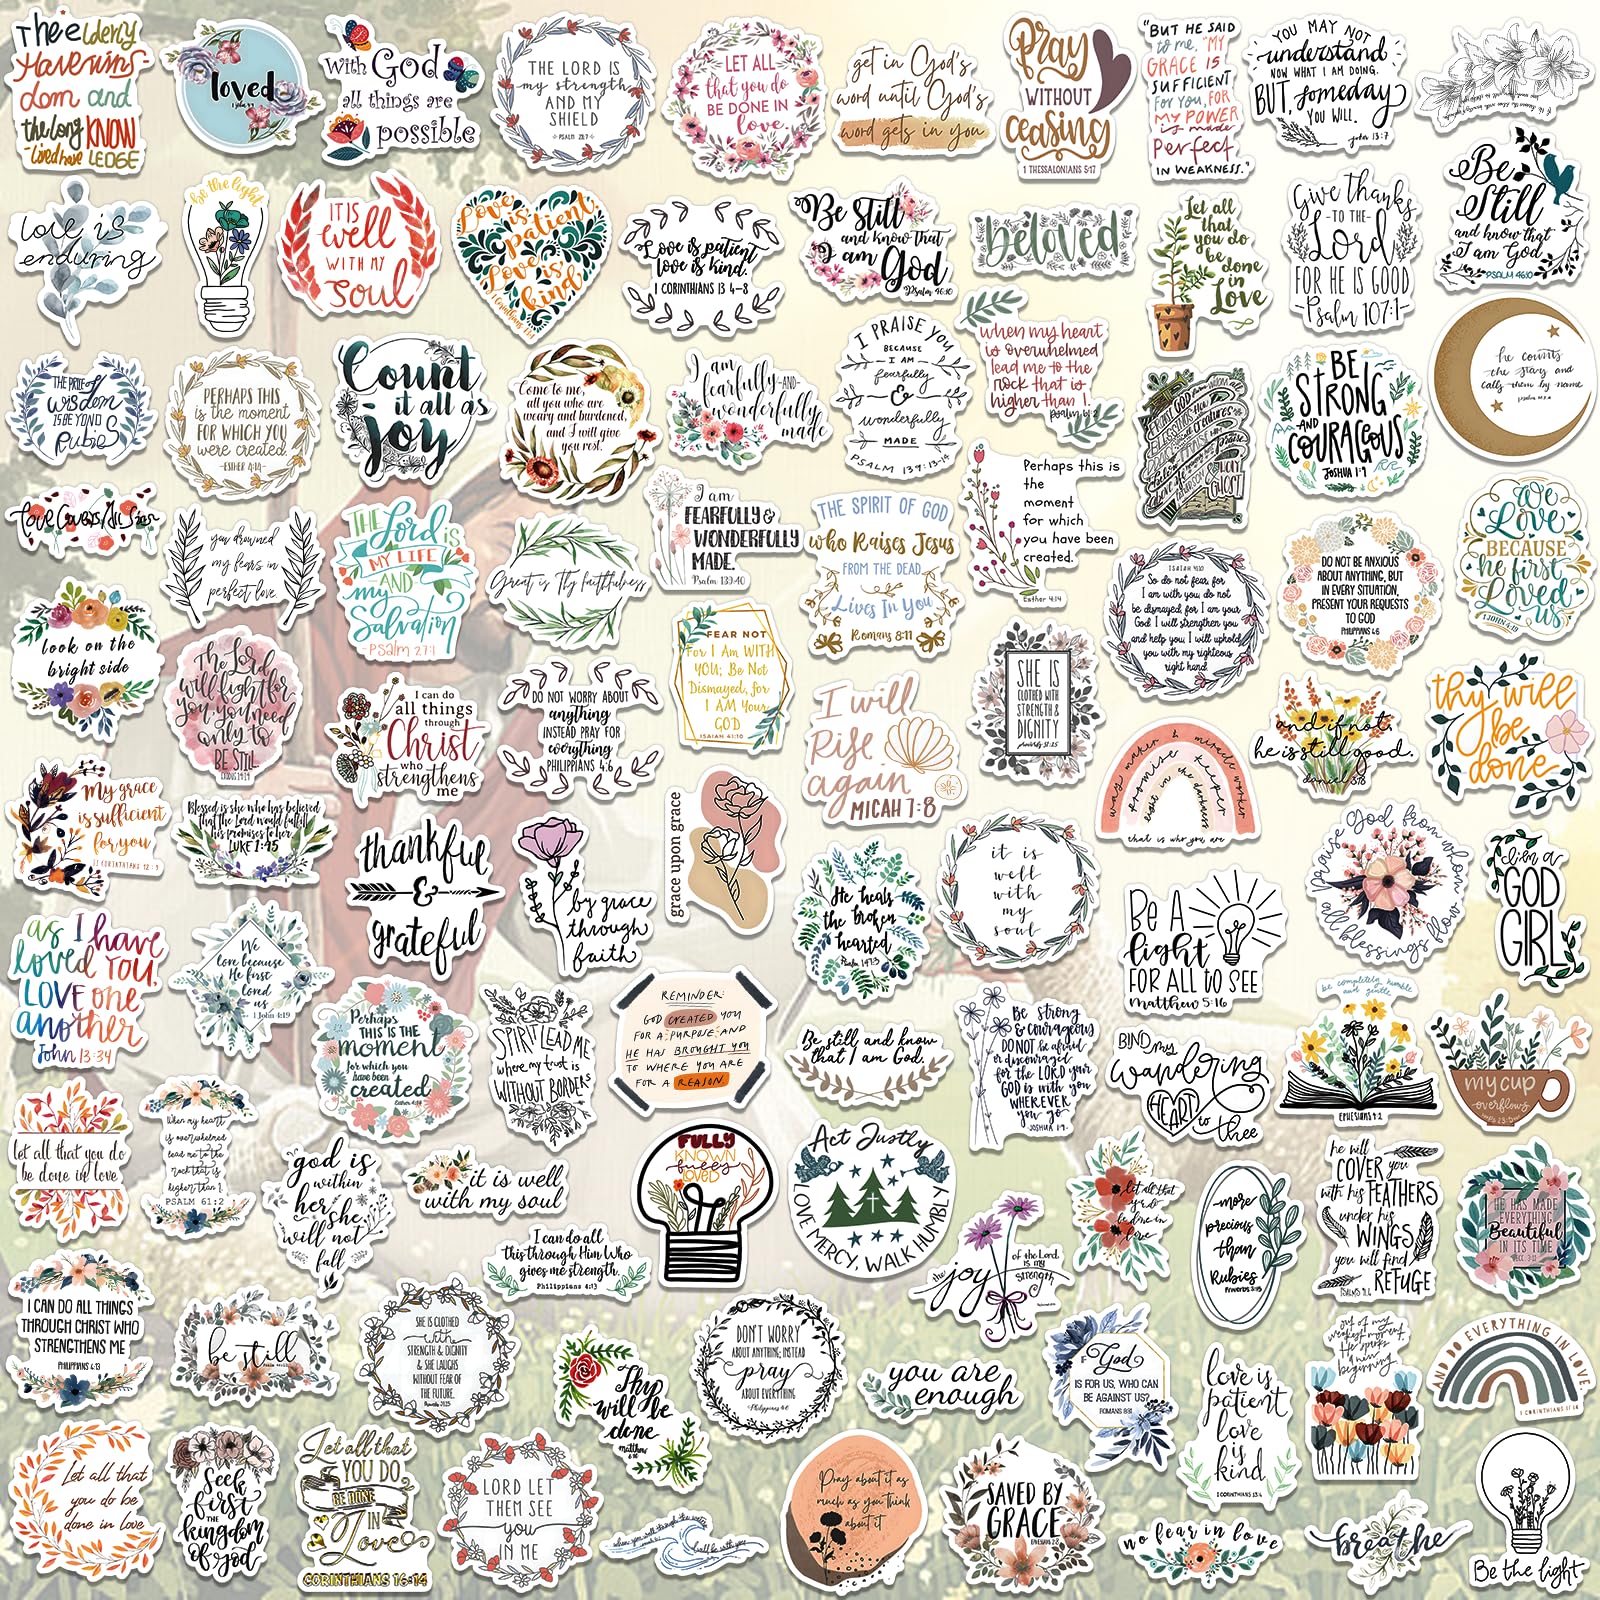 The elderly
Have wis-
dom and
the long KNOW
-lived have LEDGE
loved
With God
all things are
possible
THE LORD IS
my strength
AND MY
SHIELD
PSALM 28:7
LET ALL
that you do
BE DONE IN
love
get in God's
word until God's
word gets in you
Pray
WITHOUT
ceasing
1 THESSALONIANS 5:17
"BUT HE SAID
to me, "MY
GRACE IS
SUFFICIENT
for YOU, FOR
MY POWER
is made
Perfect
IN WEAKNESS."
YOU MAY NOT
understand
NOW WHAT I AM DOING.
BUT, someday
YOU WILL.
john 13:7
love is
enduring
be the light
IT IS
well
WITH MY
Soul
Love is
patient
Love is
kind
Love is patient
love is kind.
1 CORINTHIANS 13 4-8
Be Still
and know that
I am God
Psalm 46:10
beloved
Let all
that
you do
be done
in
Love
Give thanks
-TO THE-
Lord
FOR HE IS GOOD
-Psalm 107:1-
Be
Still
and know that
I am God
PSALM 46:10
THE PRICE of
WISDOM
IS BEYOND
Rubies
PERHAPS THIS
is the moment
FOR WHICH YOU
were created.
-ESTHER 4:14-
Count
it all as
joy
Come to me,
all you who are
weary and burdened,
and I will give
you rest.
I am
fearfully -AND-
wonderfully
made
I PRAISE YOU
BECAUSE
I AM
fearfully
&
wonderfully
MADE
PSALM 139:13-14
when my heart
is overwhelmed
lead me to the
rock that is
higher than I.
psalm 61:2
BE
STRONG
AND
COURAGEOUS
JOSHUA 1:9
he counts
the stars and
calls them by name
Love Covers All Sins
you drowned
my fears in
perfect love
THE Lord IS
MY LIFE
AND
my
Salvation
-PSALM 27:1
Great is Thy faithfulness
I am
FEARFULLY &
WONDERFULLY
MADE.
Psalm 139:40
THE SPIRIT OF GOD
who Raises Jesus
FROM THE DEAD
Lives In You
Romans 8:11
Perhaps this is
the
moment
for which
you have been
created.
Esther 4:14
ISAIAH 41:10
So do not fear for
I am with you do not
be dismayed for I am your
God I will strengthen you
and help you I will uphold
you with my righteous
right hand
DO NOT BE ANXIOUS
ABOUT ANYTHING, BUT
IN EVERY SITUATION,
PRESENT YOUR REQUESTS
TO GOD
PHILIPPIANS 4:6
We
Love
BECAUSE
he first
Loved
us
1 JOHN 4:19
look on the
bright side
The Lord
will fight for
you, you need
only to
BE STILL
EXODUS 14:14
I can do
all things
through
Christ
who
strengthens
me
DO NOT WORRY ABOUT
anything
INSTEAD PRAY FOR
everything
PHILIPPIANS 4:6
FEAR NOT
For I Am WITH
YOU; Be Not
Dismayed, for
I AM Your
GOD
ISAIAH 41:10
I will
Rise
again
MICAH 7:8
SHE IS
CLOTHED WITH
STRENGTH &
DIGNITY
proverbs 31:25
way maker & miracle worker
promise keeper
light in the darkness
that is who you are
and if not,
he is still good.
daniel 3:18
thy will
be
done
My grace
is sufficient
for you
Blessed is she who has believed
that the Lord would fulfill
his promises to her.
LUKE 1:45
thankful
&
grateful
by grace
through
faith
grace upon grace
He heals
the broken
hearted
Psalm 147:3
it is
well
with
my
soul
BE A
light
FOR ALL TO SEE
Matthew 5:16
Praise God from whom
all blessings flow
I'm a
GOD
GIRL
as I have
loved you,
LOVE one
another
John 13:34
We
love because
He first
loved
us
1 John 4:19
Perhaps
THIS IS THE
moment
for which you
have been
created
Esther 4:14
SPIRIT LEAD ME
where my trust is
WITHOUT BORDERS
REMINDER:
GOD CREATED YOU
FOR A PURPOSE AND
HE HAS BROUGHT YOU
TO WHERE YOU ARE
FOR A REASON
Be still and know
that I am God.
Be strong
& courageous
DO NOT be afraid
or discouraged
for the LORD your
GOD is with you
WHEREVER
you go
JOSHUA 1:9
BIND my
wandering
HEART to thee
be completely humble
and gentle
EPHESIANS 4:2
my cup
overflows
let all that you do
be done in love
When my heart
is overwhelmed
lead me to the
rock that is
higher than I
PSALM 61:2
god is
within
her she
will not
fall
it is well
with my soul
I can do all
this through Him Who
gives me strength.
Philippians 4:13
FULLY
KNOWN
fully
LOVED
Act Justly
LOVE MERCY, WALK HUMBLY
the joy
of the Lord
is my
strength
let all that
you do
be done in
love
more
precious
than
Rubies
Proverbs 3:15
he will
COVER you
with his FEATHERS
under his
WINGS
you will find
REFUGE
HE HAS MADE
EVERYTHING
Beautiful
IN ITS TIME
ECC 3:11
I CAN DO ALL THINGS
THROUGH CHRIST WHO
STRENGTHENS ME
PHILIPPIANS 4:13
be still
SHE IS CLOTHED
with
STRENGTH & DIGNITY
& SHE LAUGHS
WITHOUT FEAR OF
THE FUTURE.
Thy
will be
done
matthew
6:10
DON'T WORRY
ABOUT ANYTHING; INSTEAD
pray
ABOUT EVERYTHING.
you are
enough
IF God
IS FOR US, WHO CAN
BE AGAINST US?
ROMANS 8:31
love is
patient
love
is
kind
1 CORINTHIANS 13:4
out of my
weakest moment,
He sparks
a new
beginning
AND DO EVERYTHING IN LOVE
1 CORINTHIANS 16:14
Let all that
you do be
done in love
Seek
first
the
kingdom
of god
Let all that
YOU DO
BE DONE
IN
Love
CORINTHIANS 16:14
LORD LET
THEM SEE
you
IN ME
Pray about it as
much as you think
about it
SAVED BY
GRACE
EPHESIANS 2:8
no fear in love
breathe
Be the light